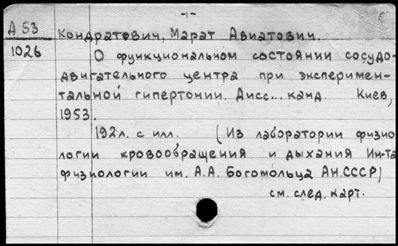 -"-
Д 53
1026
Кондратович, Марат Авиатович.
О функциональном состоянии сосудо-
двигательного центра при эксперимен-
тальной гипертонии. Дисс... канд. Киев,
1953.
192л. с илл. (Из лаборатории физио
логии кровообращения и дыхания Ин-та
физиологии им. А.А. Богомольца АН.СССР)
см. след. карт.